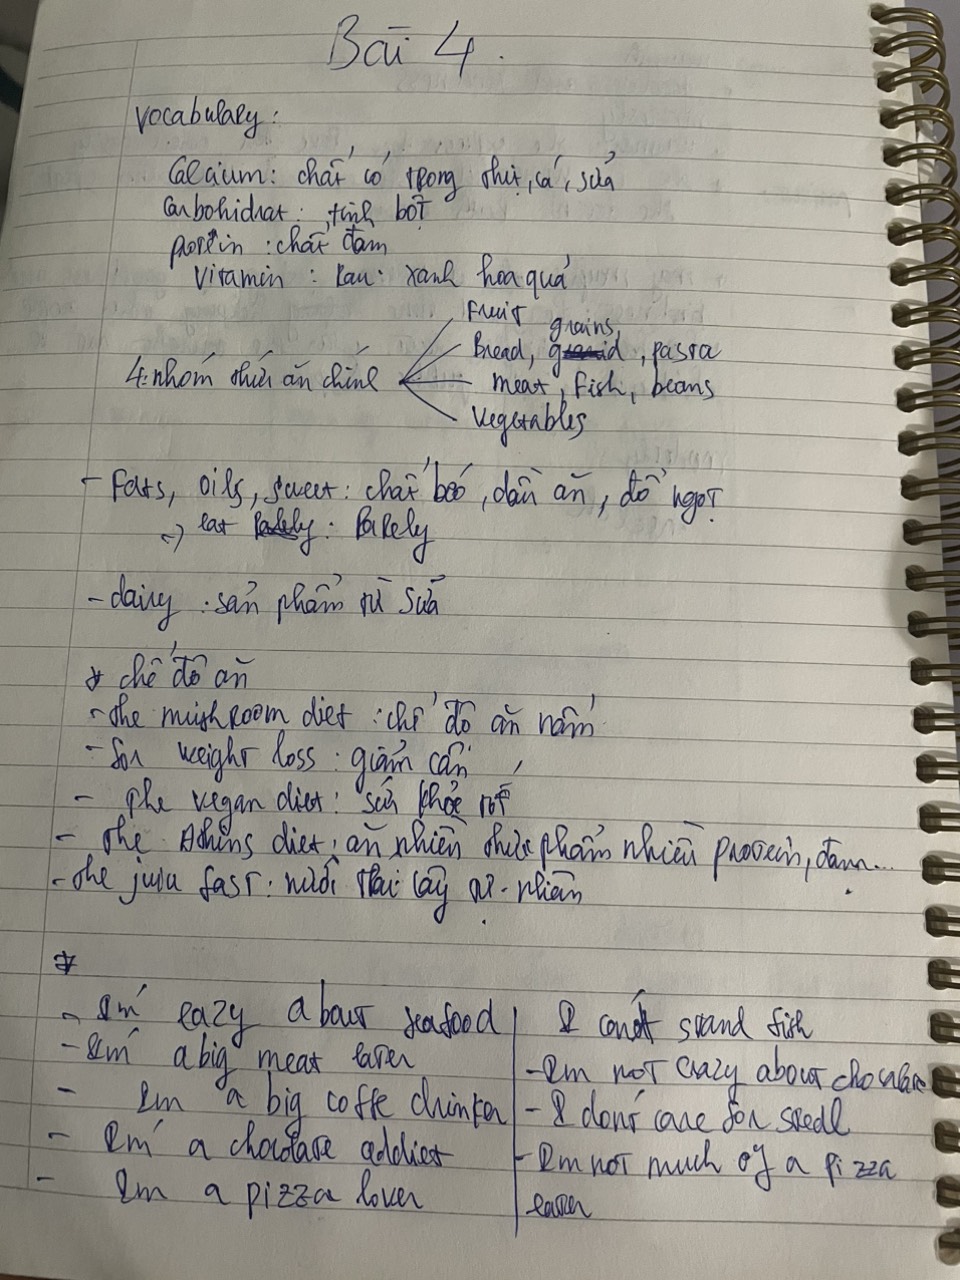 Bài 4.
Vocabulary:
Calcium: chất có trong thịt, cá, sữa
Carbohidrat: tinh bột
protein: chất đạm
Vitamin: rau: xanh hoa quả
Fruit
grains,
Bread, , pasta
4: nhóm thức ăn chính
meat, fish, beans
Vegetables
- Fats, oils, sweet: chất béo, dầu ăn, đồ ngọt
=> eat : Rarely
- dairy: sản phẩm từ sữa
* chế độ ăn
- the mushroom diet: chế độ ăn nấm
- for weight loss: giảm cân
- the vegan diet: sức khỏe tốt
- the Atkins diet: ăn nhiều thực phẩm nhiều protein, đạm...
- the fast: trái cây tự nhiên
*
- Im' about seafood
- Im' a big meat eater
- Im a big coffe drinker
- Im' a addict
- Im a pizza lover
I can't stand fish
- Im not crazy about
- I don't care for
- Im not much of a pizza
eater